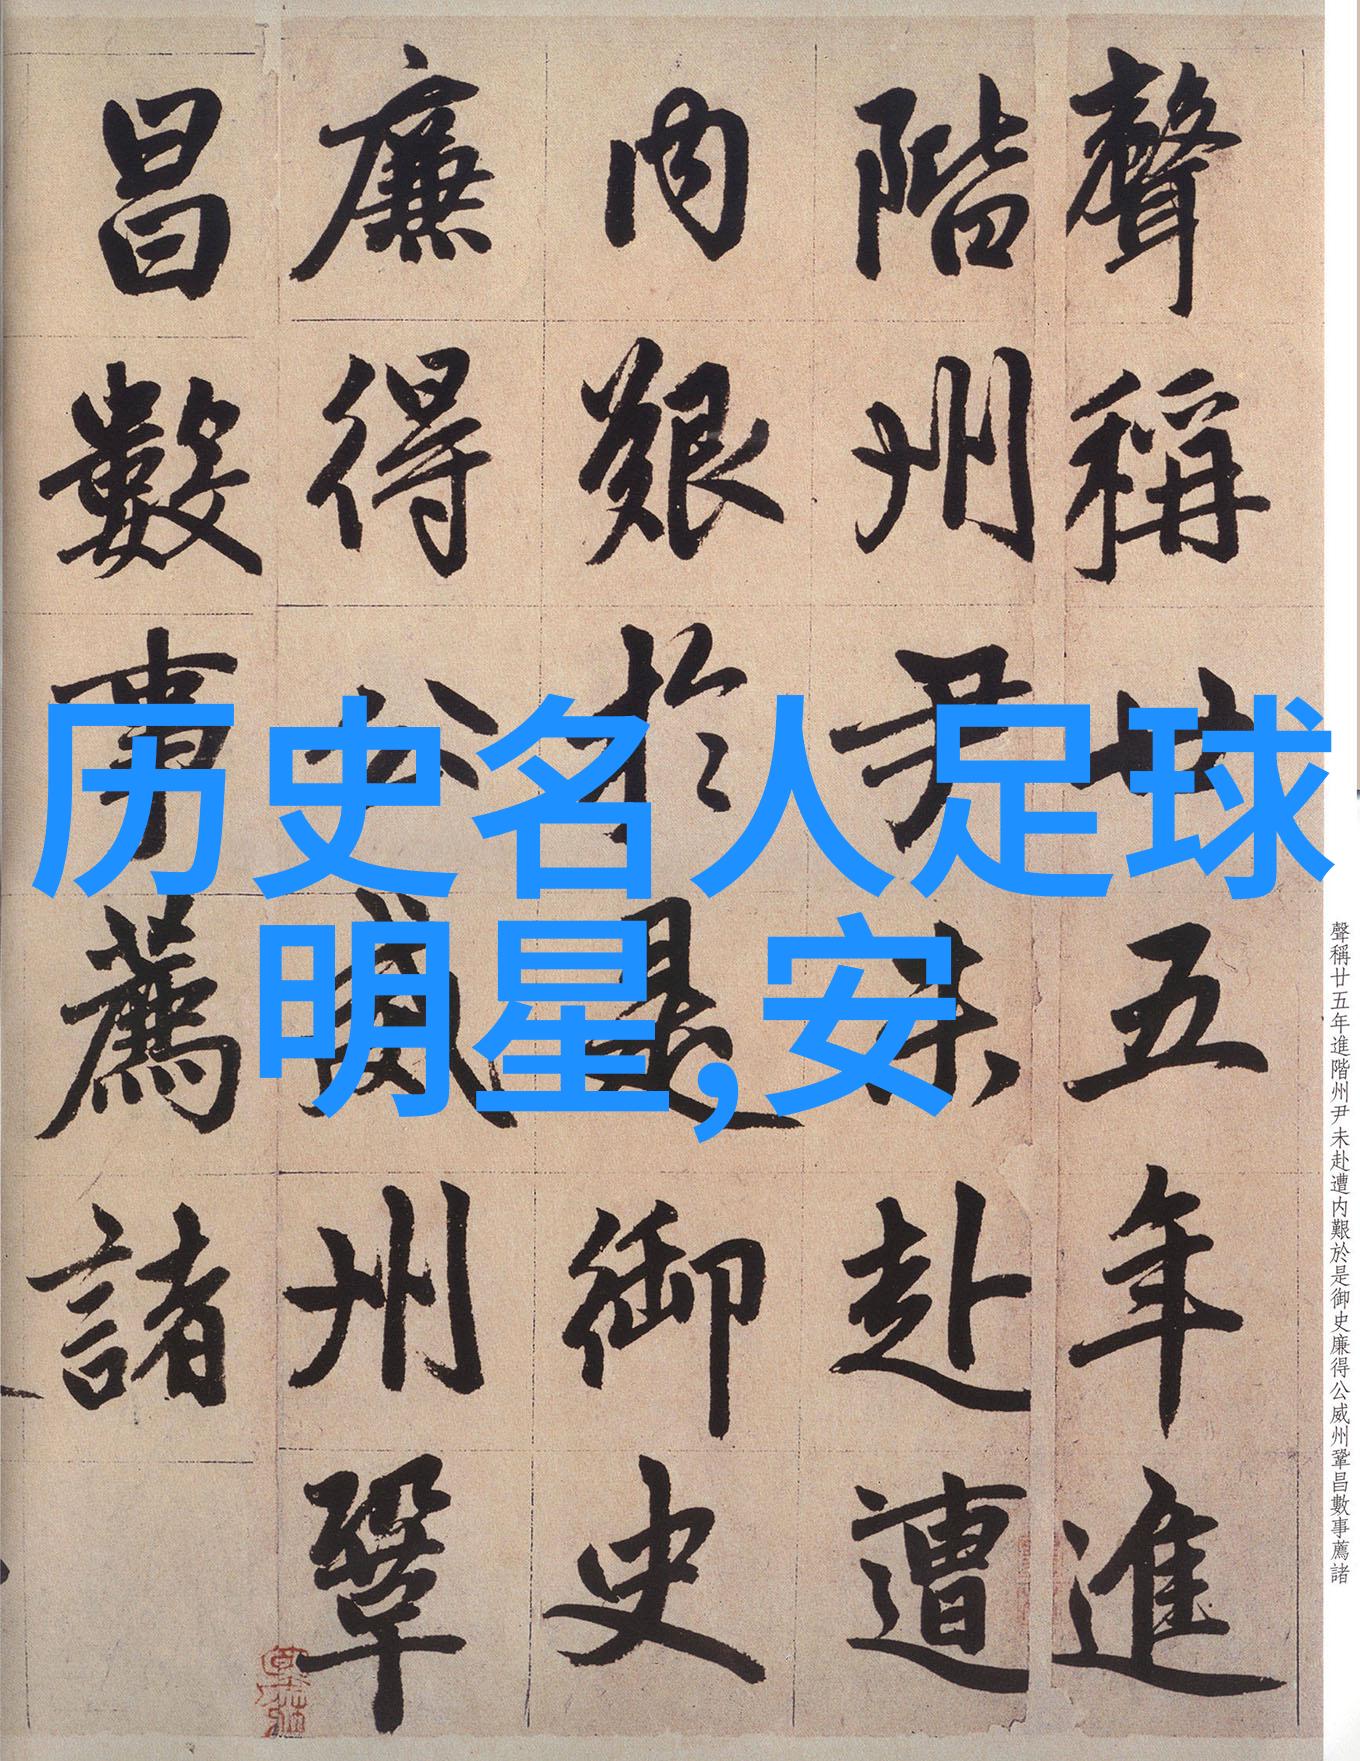 聲稱廿五年進
階州尹未赴遭
内艱於是御史
廉得公威州鞏
昌數事薦諸
历史名人足球
明星,安
聲稱廿五年進階州尹未赴遭内艱於是御史廉得公威州鞏昌數事薦諸